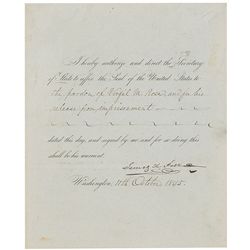 I hereby authorize and direct the Secretary
of State to affix the Seal of the United States to
the pardon of M. Rose, and for his
release from imprisonment
dated this day, and signed by me and for so doing this
shall be his warrant.
James K. Polk
Washington, 11th October 1845.